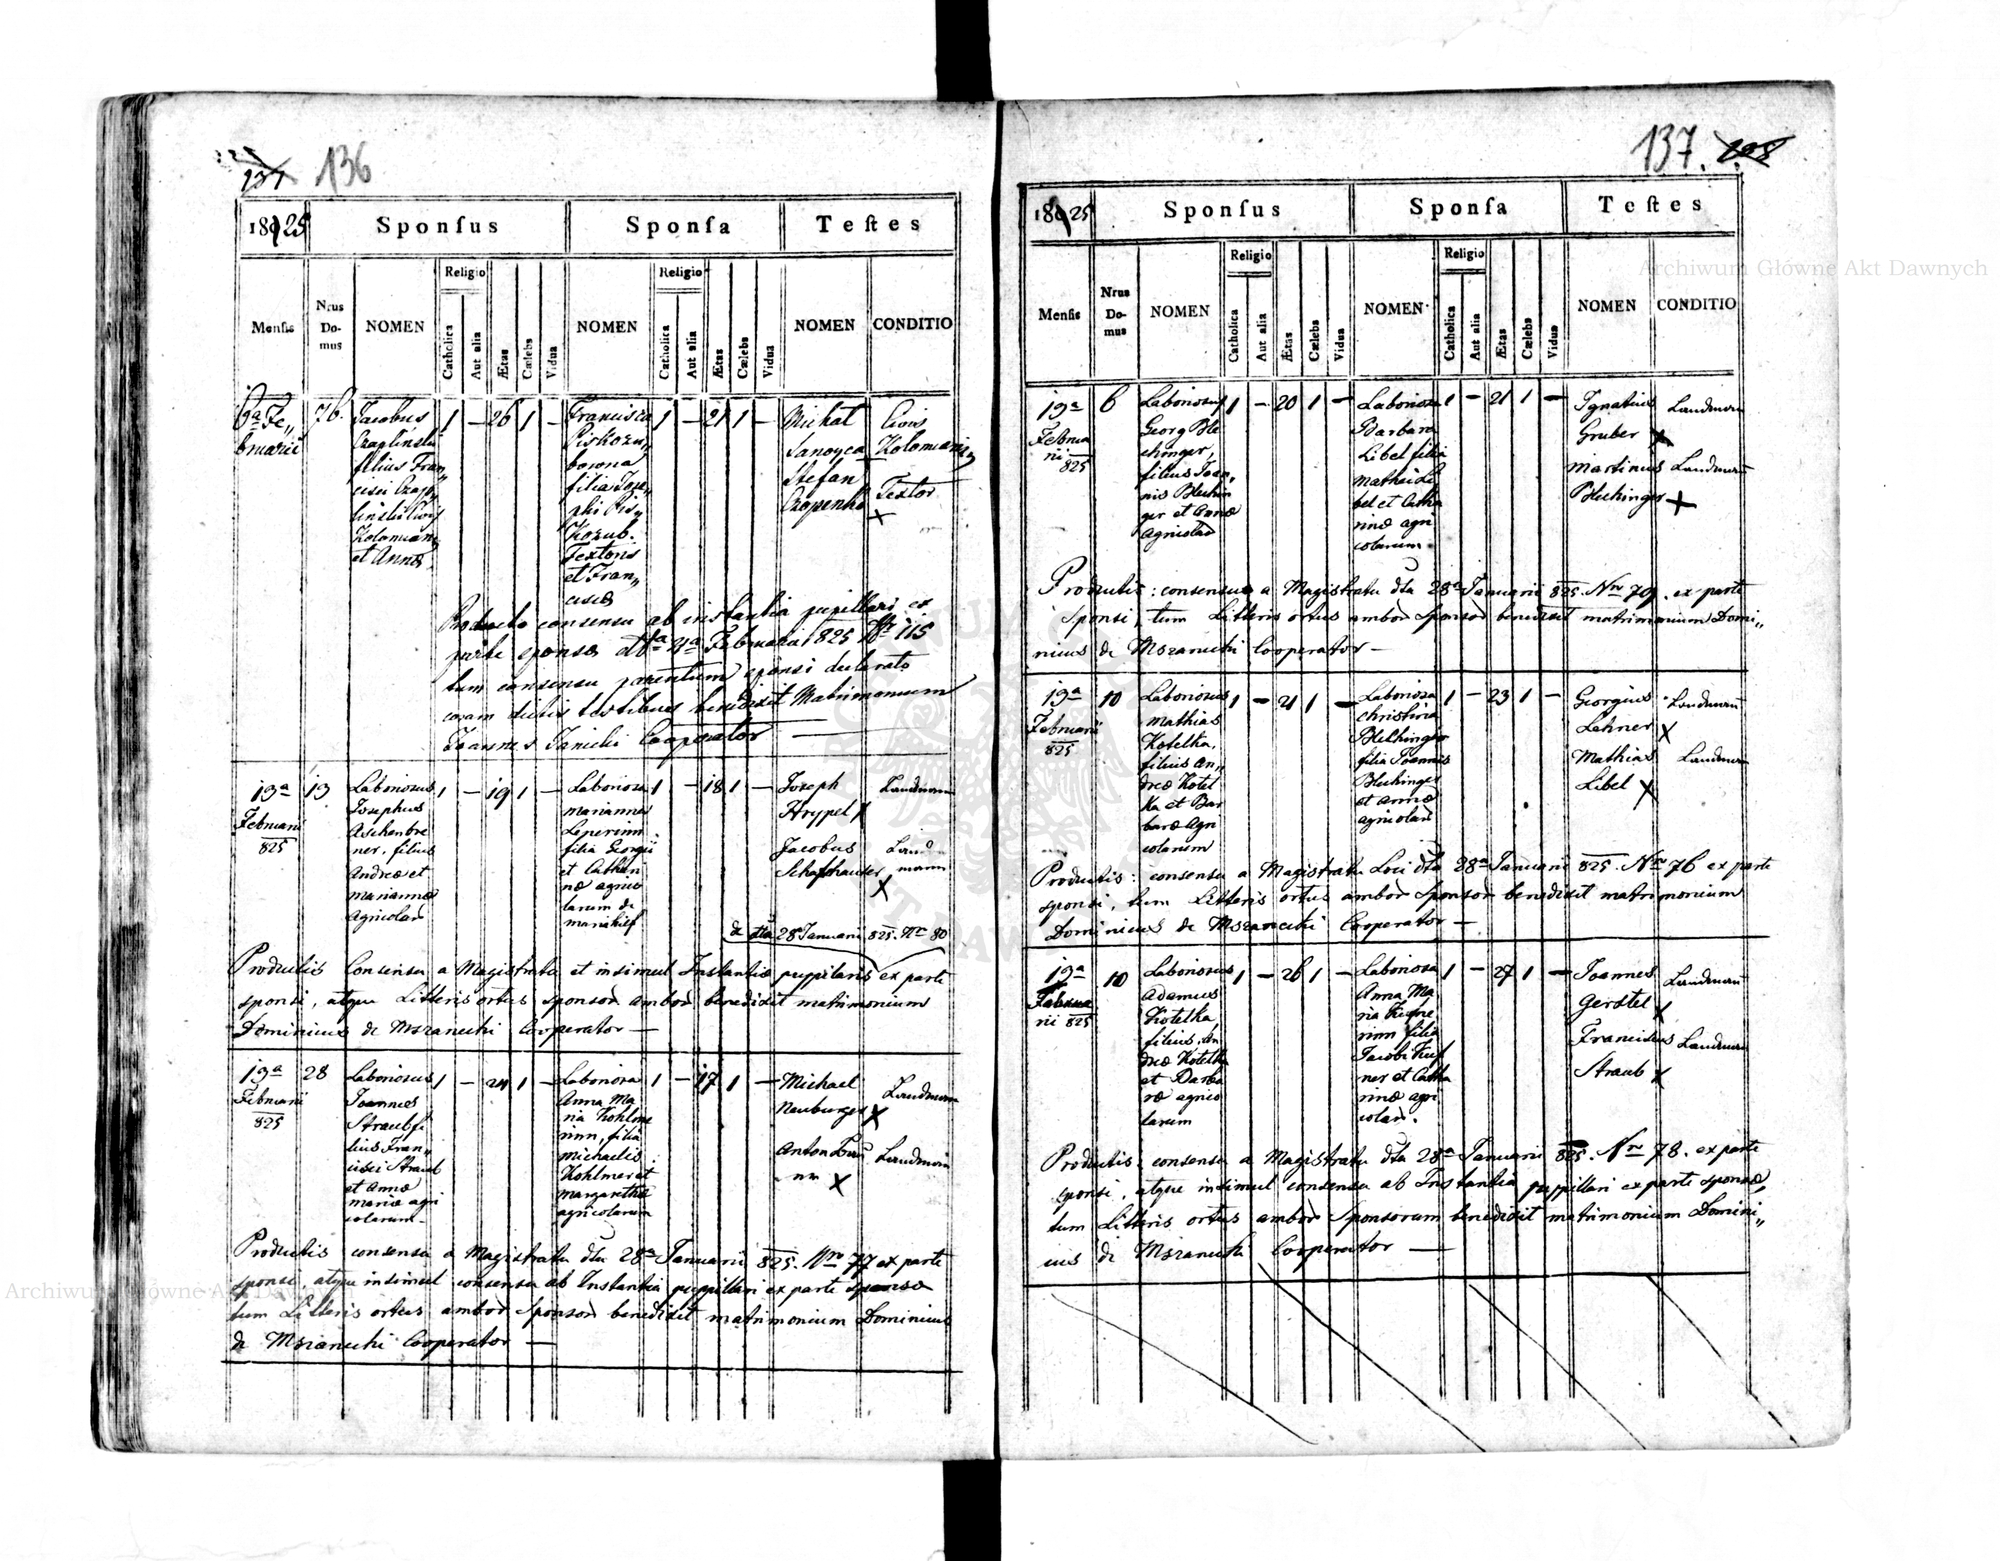 136
1825
Sponſus
Sponſa
Teſtes
Menſis
Nrus Do-mus
NOMEN
Religio
Catholica
Aut alia
Ætas
Cælebs
Vidua
NOMEN
Religio
Catholica
Aut alia
Ætas
Cælebs
Vidua
NOMEN
CONDITIO
bruarii
76.
Jacobus
filius Fran„
cisci
Kolomien„
et Annæ
1 – 26 1 –
Francisca
filia Jose„
phi Pis„
Kozub.
Textoris
et Fran„
ciscæ
1 – 21 1 –
Michal
Sanoyca
Stefan
Czopenko
Civis
Textor
X
Producto consensu ab instantia pupillari ex
parte sponsæ Februarii 825 Nr 115
tum consensu parentum sponsi declarato
coram dictis testibus benedixit Matrimonium
Joannes Janicki Cooperator
19a
Februarii
825
13
Laboriosus
Josephus
Aschenbre
ner, filius
Andreæ et
Mariannæ
Agricolar
1 – 19 1 –
Laboriosa
Marianna
Leperinn
filia Georgii
et Cathari
næ agrico
larum de
Mariahilf
1 – 18 1 –
Joseph
Hrypel X
Jacobus
Schafhauser
Landmann
Land
mann
X
de dto 28 Januarii 825. Nro 80
Productis Consensu a Magistratu et insimul Instantiæ pupilaris ex parte
sponsi, atque Litteris ortus sponsor. ambor. benedixit matrimonium
Dominicus de Mszanecki Cooperator —
19a
Februarii
825
28
Laboriosus
Joannes
Straub fi
lius Fran„
cisci Straub
et Annæ
Mariæ agri
colarum
1 – 24 1 –
Laboriosa
Anna Ma
ria Kohlme
rinn, filia
Michaelis
Kohlmer et
Margarethæ
agricolarum
1 – 17 1 –
Michael
Neuburger X
Anton
X
Landmann
Landmann
Productis consensu a Magistratu dto 28a Januarii 825. Nro 77 ex parte
sponsi, atque insimul consensu ab Instantia puppillari ex parte sponsæ
tum Litteris ortus ambor. Sponsor. benedixit matrimonium Dominicus
de Mszanecki Cooperator —
137.
1825
Sponſus
Sponſa
Teſtes
Menſis
Nrus Do-mus
NOMEN
Religio
Catholica
Aut alia
Ætas
Cælebs
Vidua
NOMEN
Religio
Catholica
Aut alia
Ætas
Cælebs
Vidua
NOMEN
CONDITIO
19a
Februa
rii
825
6
Laboriosus
Georg Ble
chinger,
filius Joan„
nis Blechin
ger et Annæ
Agricolar
1 – 20 1 –
Laboriosa
Barbara
Libel filia
Mathæi Li
bel et Catha
rinæ agri
colarum
1 – 21 1 –
Ignatius
Gruber X
Martinus
Blechinger X
Landmann
Landmann
Productis: consensus a Magistratu dto 28a Januarii 825. Nro 79. ex parte
sponsi, tum Litteris ortus ambor Sponsor. benedixit matrimonium Domi„
nicus de Mszanecki Cooperator —
19a
Februarii
825
10
Laboriosus
Mathias
Kotelka,
filius An„
dreæ Kotel
ka et Bar
baræ Agri
colarum
1 – 21 1 –
Laboriosa
Christina
Blechinger
filia Joannis
Blechinger
et Annæ
agricolar
1 – 23 1 –
Georgius
Lehner X
Mathias
Libel X
Landmann
Landmann
Productis: consensu a Magistratu Loci dto 28a Januarii 825. Nro 76 ex parte
sponsi, tum Litteris ortus ambor Sponsor. benedixit matrimonium
Dominicus de Mszanecki Cooperator —
19a
Februa
rii 825
10
Laboriosus
Adamus
Kotelka
filius An
dreæ Kotelka
et Barba
ræ agrico
larum
1 – 26 1 –
Laboriosa
Anna Ma
ria
rinn filia
Jacobi
ner et Catha
rinæ agri
colar.
1 – 27 1 –
Joannes
Gerstel X
Franciscus
Straub X
Landmann
Landmann
Productis: consensu a Magistratu dto 28a Januarii 825. Nro 78. ex parte
sponsi, atque insimul consensu ab Instantia puppillari ex parte sponsæ,
tum Litteris ortus ambor Sponsorum benedixit matrimonium Domini„
cus de Mszanecki Cooperator —
Archiwum Główne Akt Dawnych
Archiwum Główne Akt Dawnych